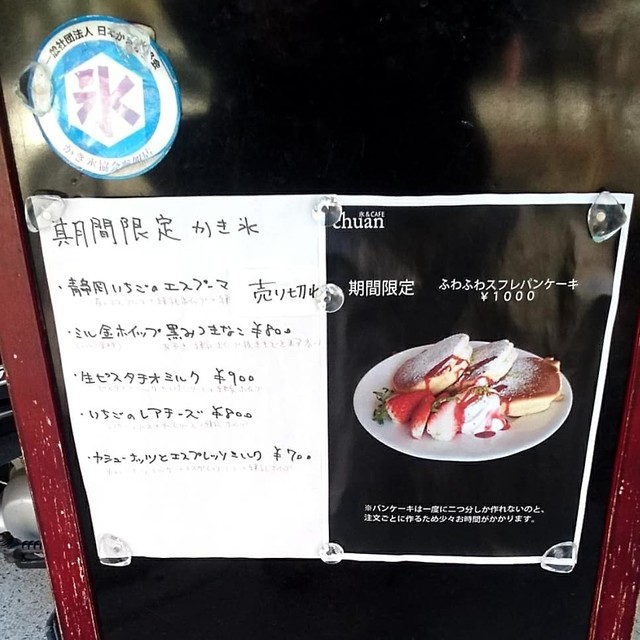 一般社団法人 日本かき氷協会
氷
かき氷協会参加店
期間限定 かき氷
・静岡いちごのエスプーマ 売り切れ
・ミルク金ホイップ黒みつきなこ ¥800
・生ピスタチオミルク ¥900
・いちごのレアチーズ ¥800
・カシューナッツとエスプレッソミルク ¥700
氷&CAFE
chuan
期間限定 ふわふわスフレパンケーキ
¥1000
※パンケーキは一度に二つ分しか作れないのと、
注文ごとに作るため少々お時間がかかります。